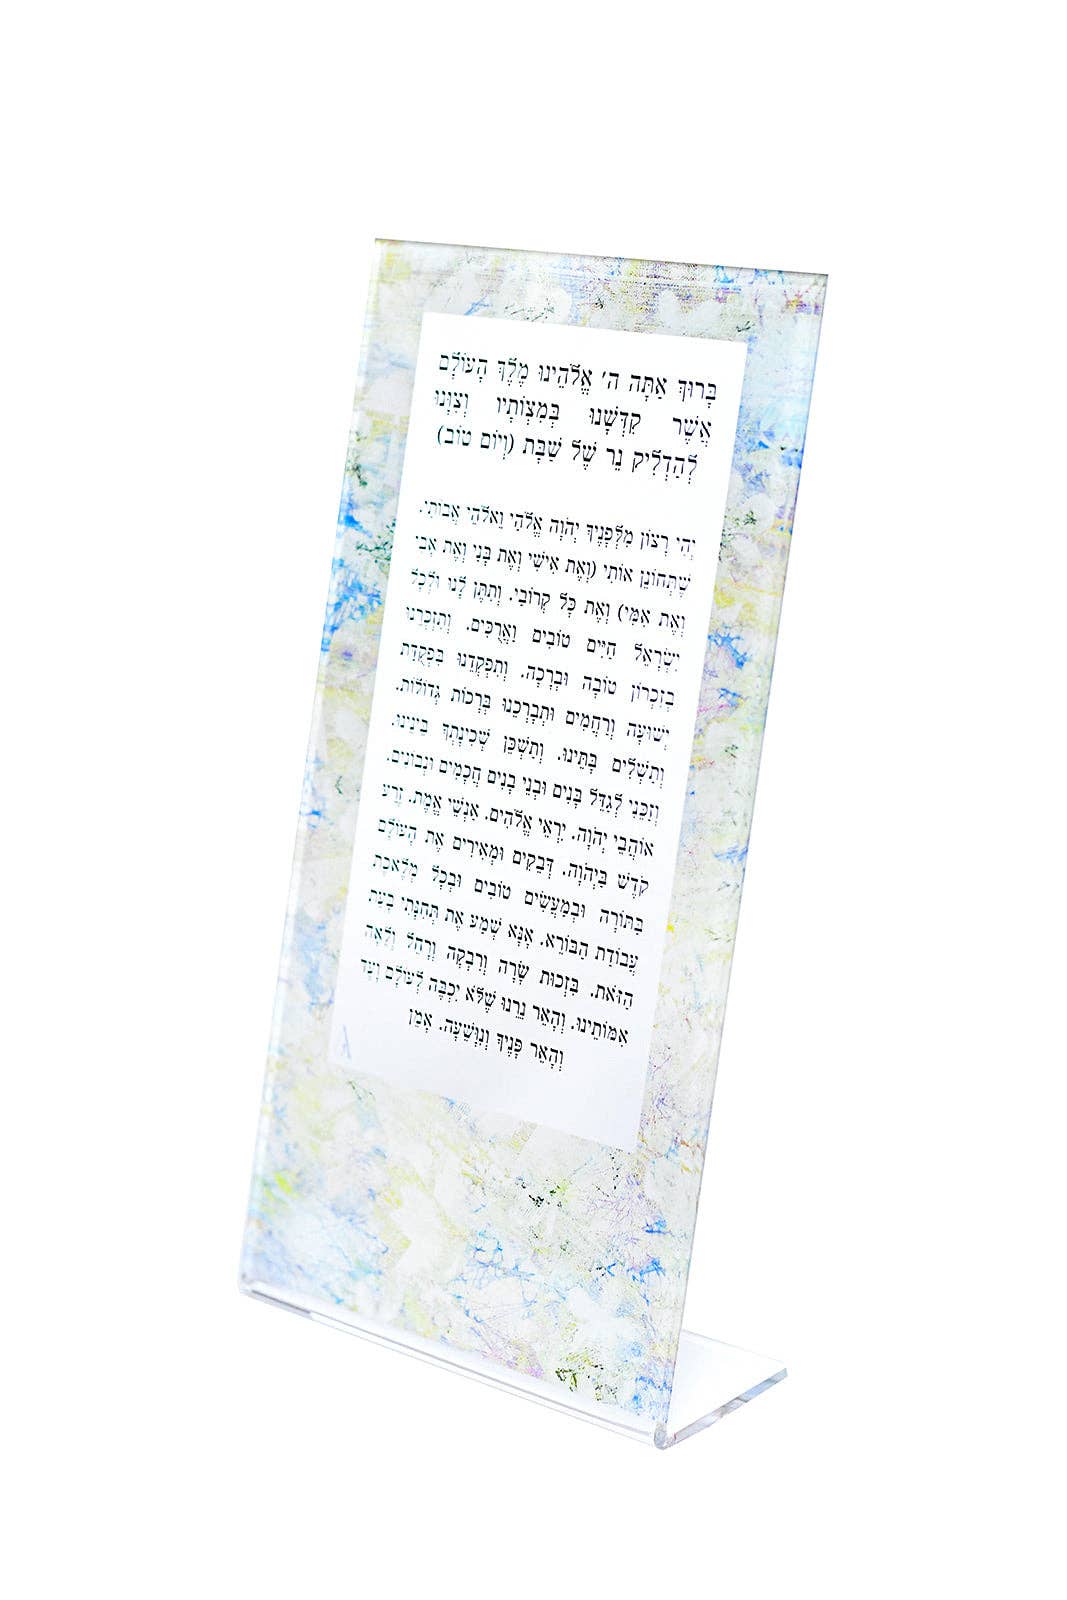 בָּרוּךְ אַתָּה ה' אֱלֹהֵינוּ מֶלֶךְ הָעוֹלָם
אֲשֶׁר קִדְּשָׁנוּ בְּמִצְוֹתָיו וְצִוָּנוּ
לְהַדְלִיק נֵר שֶׁל שַׁבָּת (וְיוֹם טוֹב)
יְהִי רָצוֹן מִלְּפָנֶיךָ יְהֹוָה אֱלֹהַי וֵאלֹהֵי אֲבוֹתַי.
שֶׁתְּחוֹנֵן אוֹתִי (וְאֶת אִישִׁי וְאֶת בָּנַי וְאֶת אָבִי
וְאֶת אִמִּי) וְאֶת כָּל קְרוֹבַי. וְתִתֵּן לָנוּ וּלְכָל
יִשְׂרָאֵל חַיִּים טוֹבִים וַאֲרֻכִּים. וְתִזְכְּרֵנוּ
בְּזִכְרוֹן טוֹבָה וּבְרָכָה. וְתִפְקְדֵנוּ בִּפְקֻדַּת
יְשׁוּעָה וְרַחֲמִים וּתְבָרְכֵנוּ בְּרָכוֹת גְּדוֹלוֹת.
וְתַשְׁלִים בָּתֵּינוּ. וְתַשְׁכֵּן שְׁכִינָתְךָ בֵּינֵינוּ.
וְזַכֵּנִי לְגַדֵּל בָּנִים וּבְנֵי בָנִים חֲכָמִים וּנְבוֹנִים.
אוֹהֲבֵי יְהֹוָה. יִרְאֵי אֱלֹהִים. אַנְשֵׁי אֱמֶת. זֶרַע
קֹדֶשׁ בַּיהֹוָה. דְּבֵקִים וּמְאִירִים אֶת הָעוֹלָם
בַּתּוֹרָה וּבְמַעֲשִׂים טוֹבִים וּבְכָל מְלֶאכֶת
עֲבוֹדַת הַבּוֹרֵא. אָנָּא שְׁמַע אֶת תְּחִנָּתִי בָּעֵת
הַזֹּאת. בִּזְכוּת שָׂרָה וְרִבְקָה וְרָחֵל וְלֵאָה
אִמּוֹתֵינוּ. וְהָאֵר נֵרֵנוּ שֶׁלֹּא יִכְבֶּה לְעוֹלָם וָעֶד
וְהָאֵר פָּנֶיךָ וְנִוָּשֵׁעָה. אָמֵן